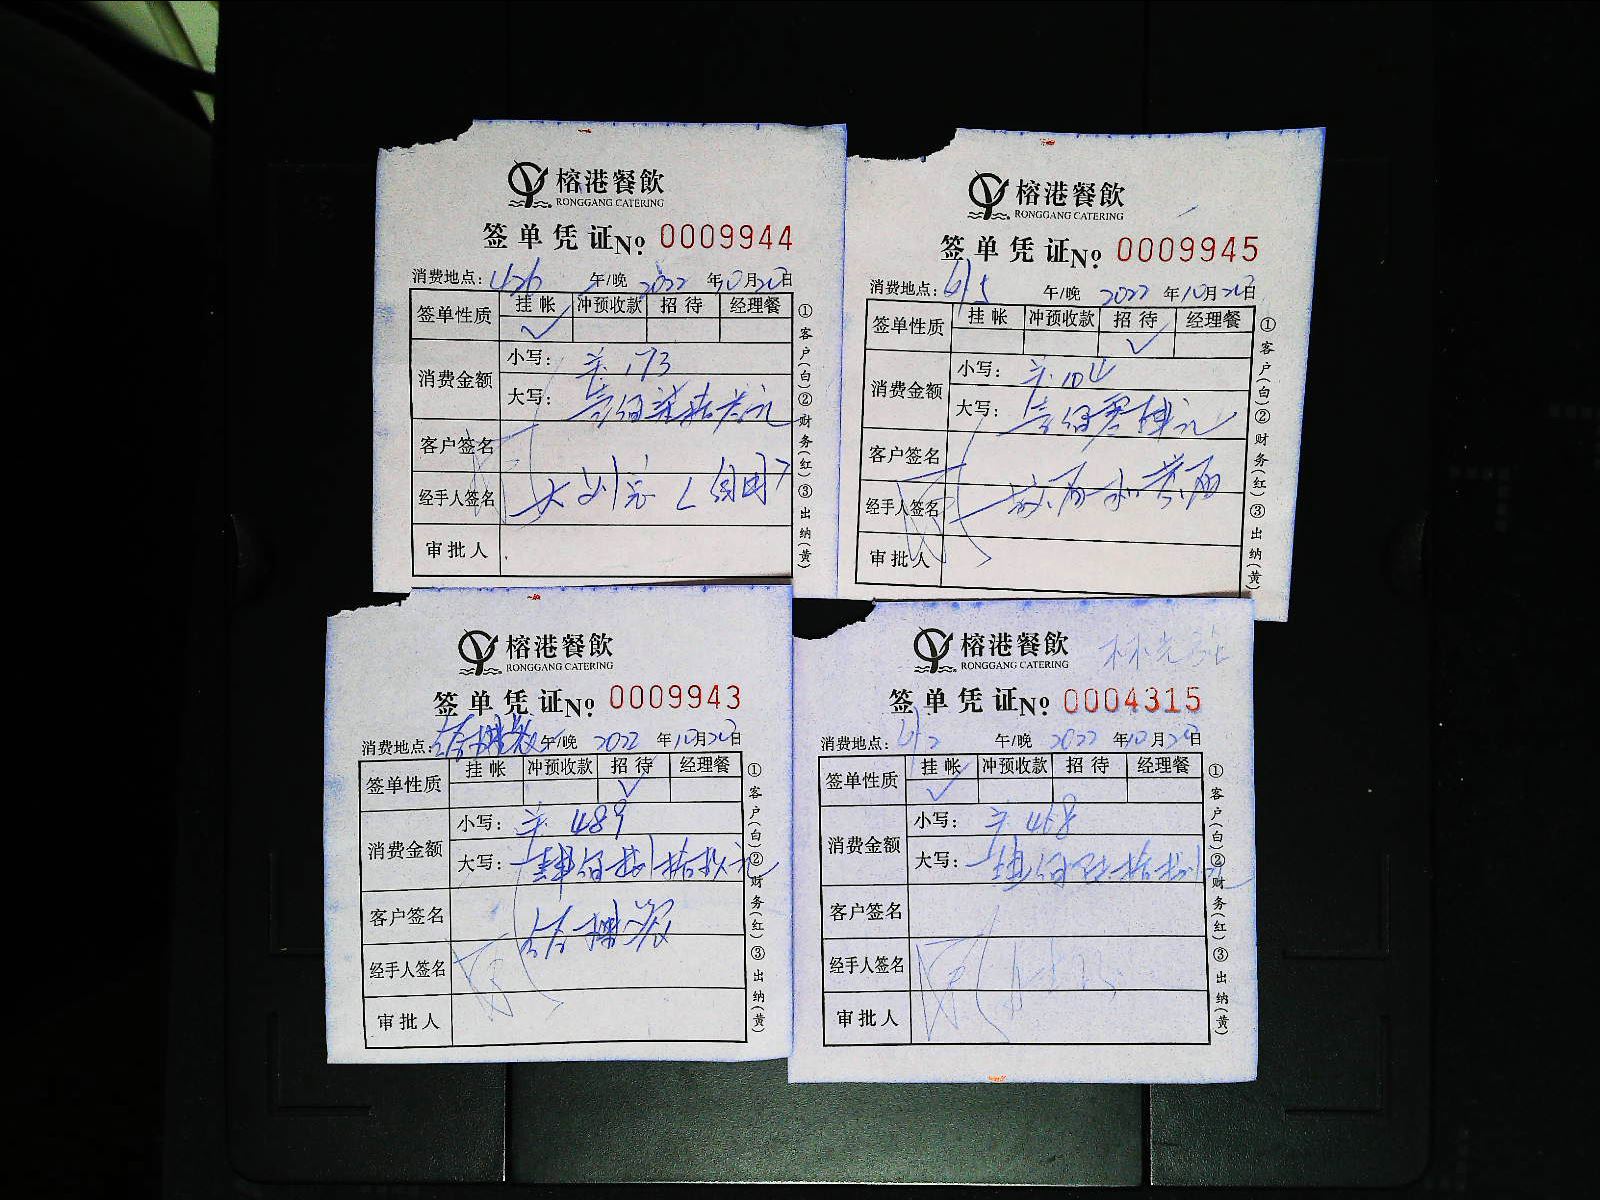 榕港餐飲
RONGGANG CATERING
签单凭证No. 0009944
消费地点: 426 午/晚 2022 年10月20日
签单性质 挂帐 冲预收款 招待 经理餐
✓
消费金额
小写: 173
大写: 壹佰柒拾叁元
客户签名
经手人签名
审批人
①客户(白)②财务(红)③出纳(黄)
榕港餐飲
RONGGANG CATERING
签单凭证No. 0009945
消费地点: 午/晚 2022 年10月20日
签单性质 挂帐 冲预收款 招待 经理餐
✓
消费金额
小写: 104
大写: 壹佰零肆元
客户签名
经手人签名
审批人
①客户(白)②财务(红)③出纳(黄)
榕港餐飲
RONGGANG CATERING
签单凭证No. 0009943
消费地点: 午/晚 2022 年10月20日
签单性质 挂帐 冲预收款 招待 经理餐
✓
消费金额
小写: 489
大写: 肆佰捌拾玖元
客户签名
经手人签名
审批人
①客户(白)②财务(红)③出纳(黄)
榕港餐飲
RONGGANG CATERING
签单凭证No. 0004315
消费地点: 午/晚 2022 年10月20日
签单性质 挂帐 冲预收款 招待 经理餐
✓
消费金额
小写: 468
大写: 肆佰陆拾捌元
客户签名
经手人签名
审批人
①客户(白)②财务(红)③出纳(黄)